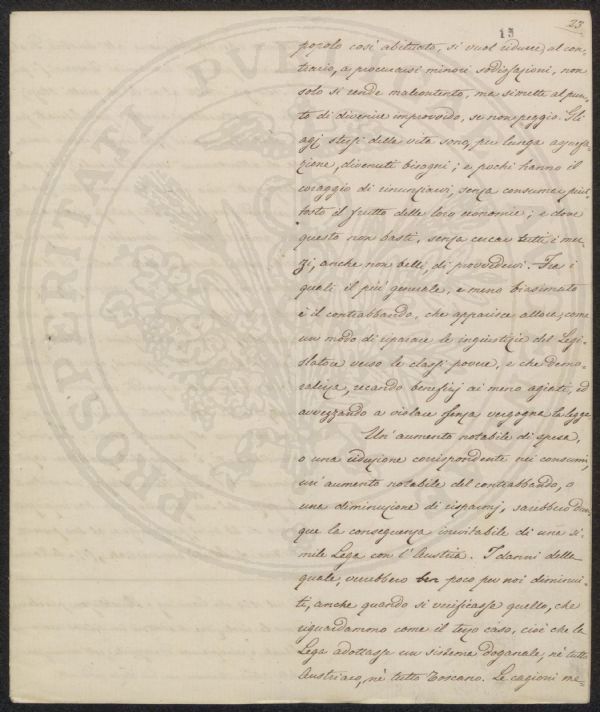 23
13
popolo così abituato, si vuol ridurre al con,
trario, a procurarsi minori sodisfazioni, non
solo si rende malcontento, ma si mette al pun,
to di divenire improvvido, se non peggio. Gli
agj stessi della vita sono, per lunga assuefa,
zione, divenuti bisogni; e pochi hanno il
coraggio di rinunziarvi, senza consumare piut,
tosto il frutto delle loro economie; e dove
questo non basti, senza cercar tutti i mez,
zi, anche non belli, di provvedervi. Fra i
quali il più generale, e meno biasimato
è il contrabbando, che apparisce allora, come
un modo di riparare le ingiustizie del Legi,
slatore verso le classi povere, e che demo,
ralizza, recando benefizj ai meno agiati, ed
avvezzando a violare senza vergogna la legge.
Un' aumento notabile di spesa,
o una riduzione corrispondente nei consumi,
un' aumento notabile del contrabbando, o
una diminuzione di risparmj, sarebbero dun,
que la conseguenza inevitabile di una si,
mile Lega con l' Austria. I danni della
quale, verrebbero ben poco per noi diminui,
ti, anche quando si verificasse quello, che
riguardammo come il terzo caso, cioè che la
Lega adottasse un sistema doganale, nè tutto
Austriaco, nè tutto Toscano. Le cagioni me,
PROSPERITATI PVBL